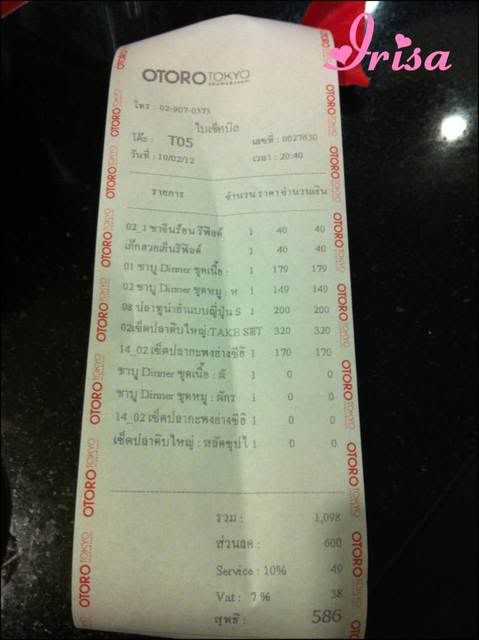 Irisa
OTORO TOKYO
โทร : 02-907-0373
ใบเช็คบิล
โต๊ะ : T05 เลขที่ : 0027630
วันที่ : 10/02/12 เวลา : 20:40
รายการ จำนวน ราคา จำนวนเงิน
02_1 ชาจีนร้อน รีฟิลด์ 1 40 40
เก๊กฮวยเย็นรีฟิลด์ 1 40 40
01 ชาบู Dinner ชุดเนื้อ : 1 179 179
02 ชาบู Dinner ชุดหมู : ห 1 149 149
08 ปลาทูน่ายำแบบญี่ปุ่น S 1 200 200
02เซ็ตปลาดิบใหญ่:TAKE SET 320 320
14_02 เซ็ตปลากะพงย่างซีอิ 1 170 170
ชาบู Dinner ชุดเนื้อ : ผั 1 0 0
ชาบู Dinner ชุดหมู : ผักร 1 0 0
14_02 เซ็ตปลากะพงย่างซีอิ 1 0 0
เซ็ตปลาดิบใหญ่ : สลัดซุปไ 1 0 0
รวม : 1,098
ส่วนลด : 600
Service : 10% 49
Vat : 7 % 38
สุทธิ : 586